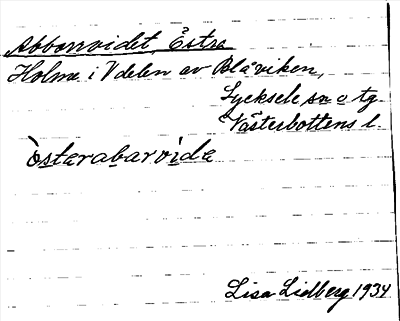 Abborrvidet, Östra
Holme i V delen av Blåviken,
Lycksele sn o tg.
Västerbottens l.
òsterabarvìda
Lisa Lidberg 1934